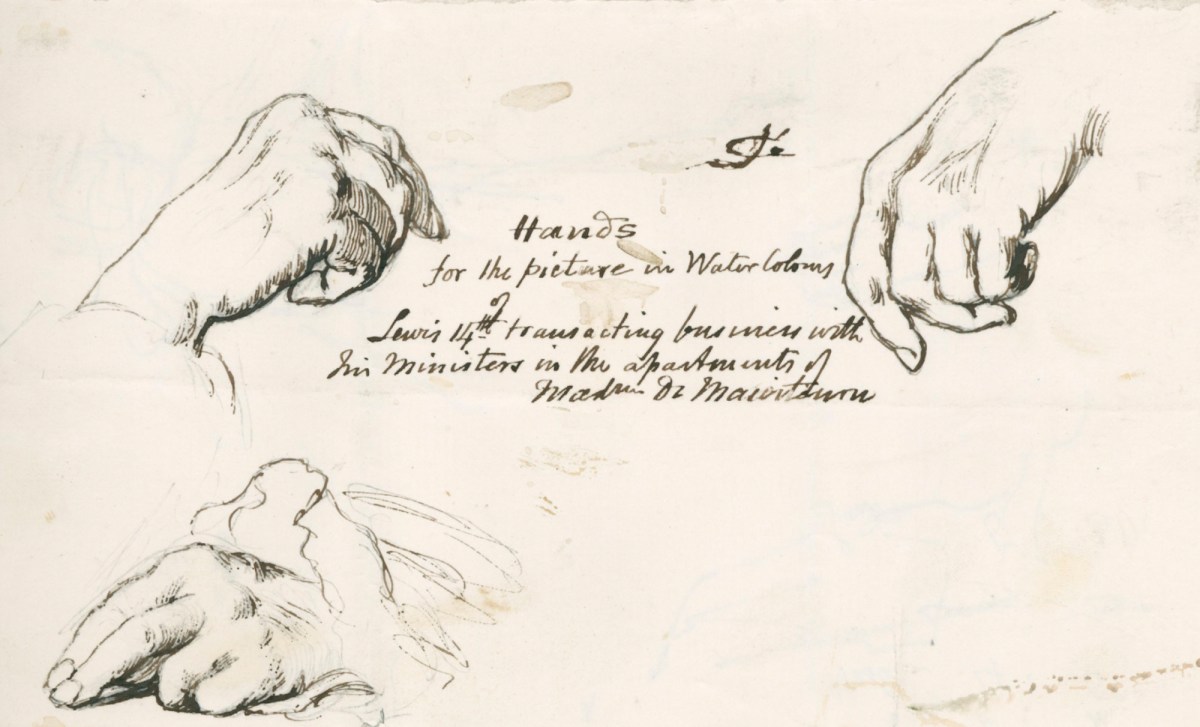 Hands
for the picture in Water Colours
of
Lewis 14th transacting business with
his Ministers in the apartments of
De Maintenon